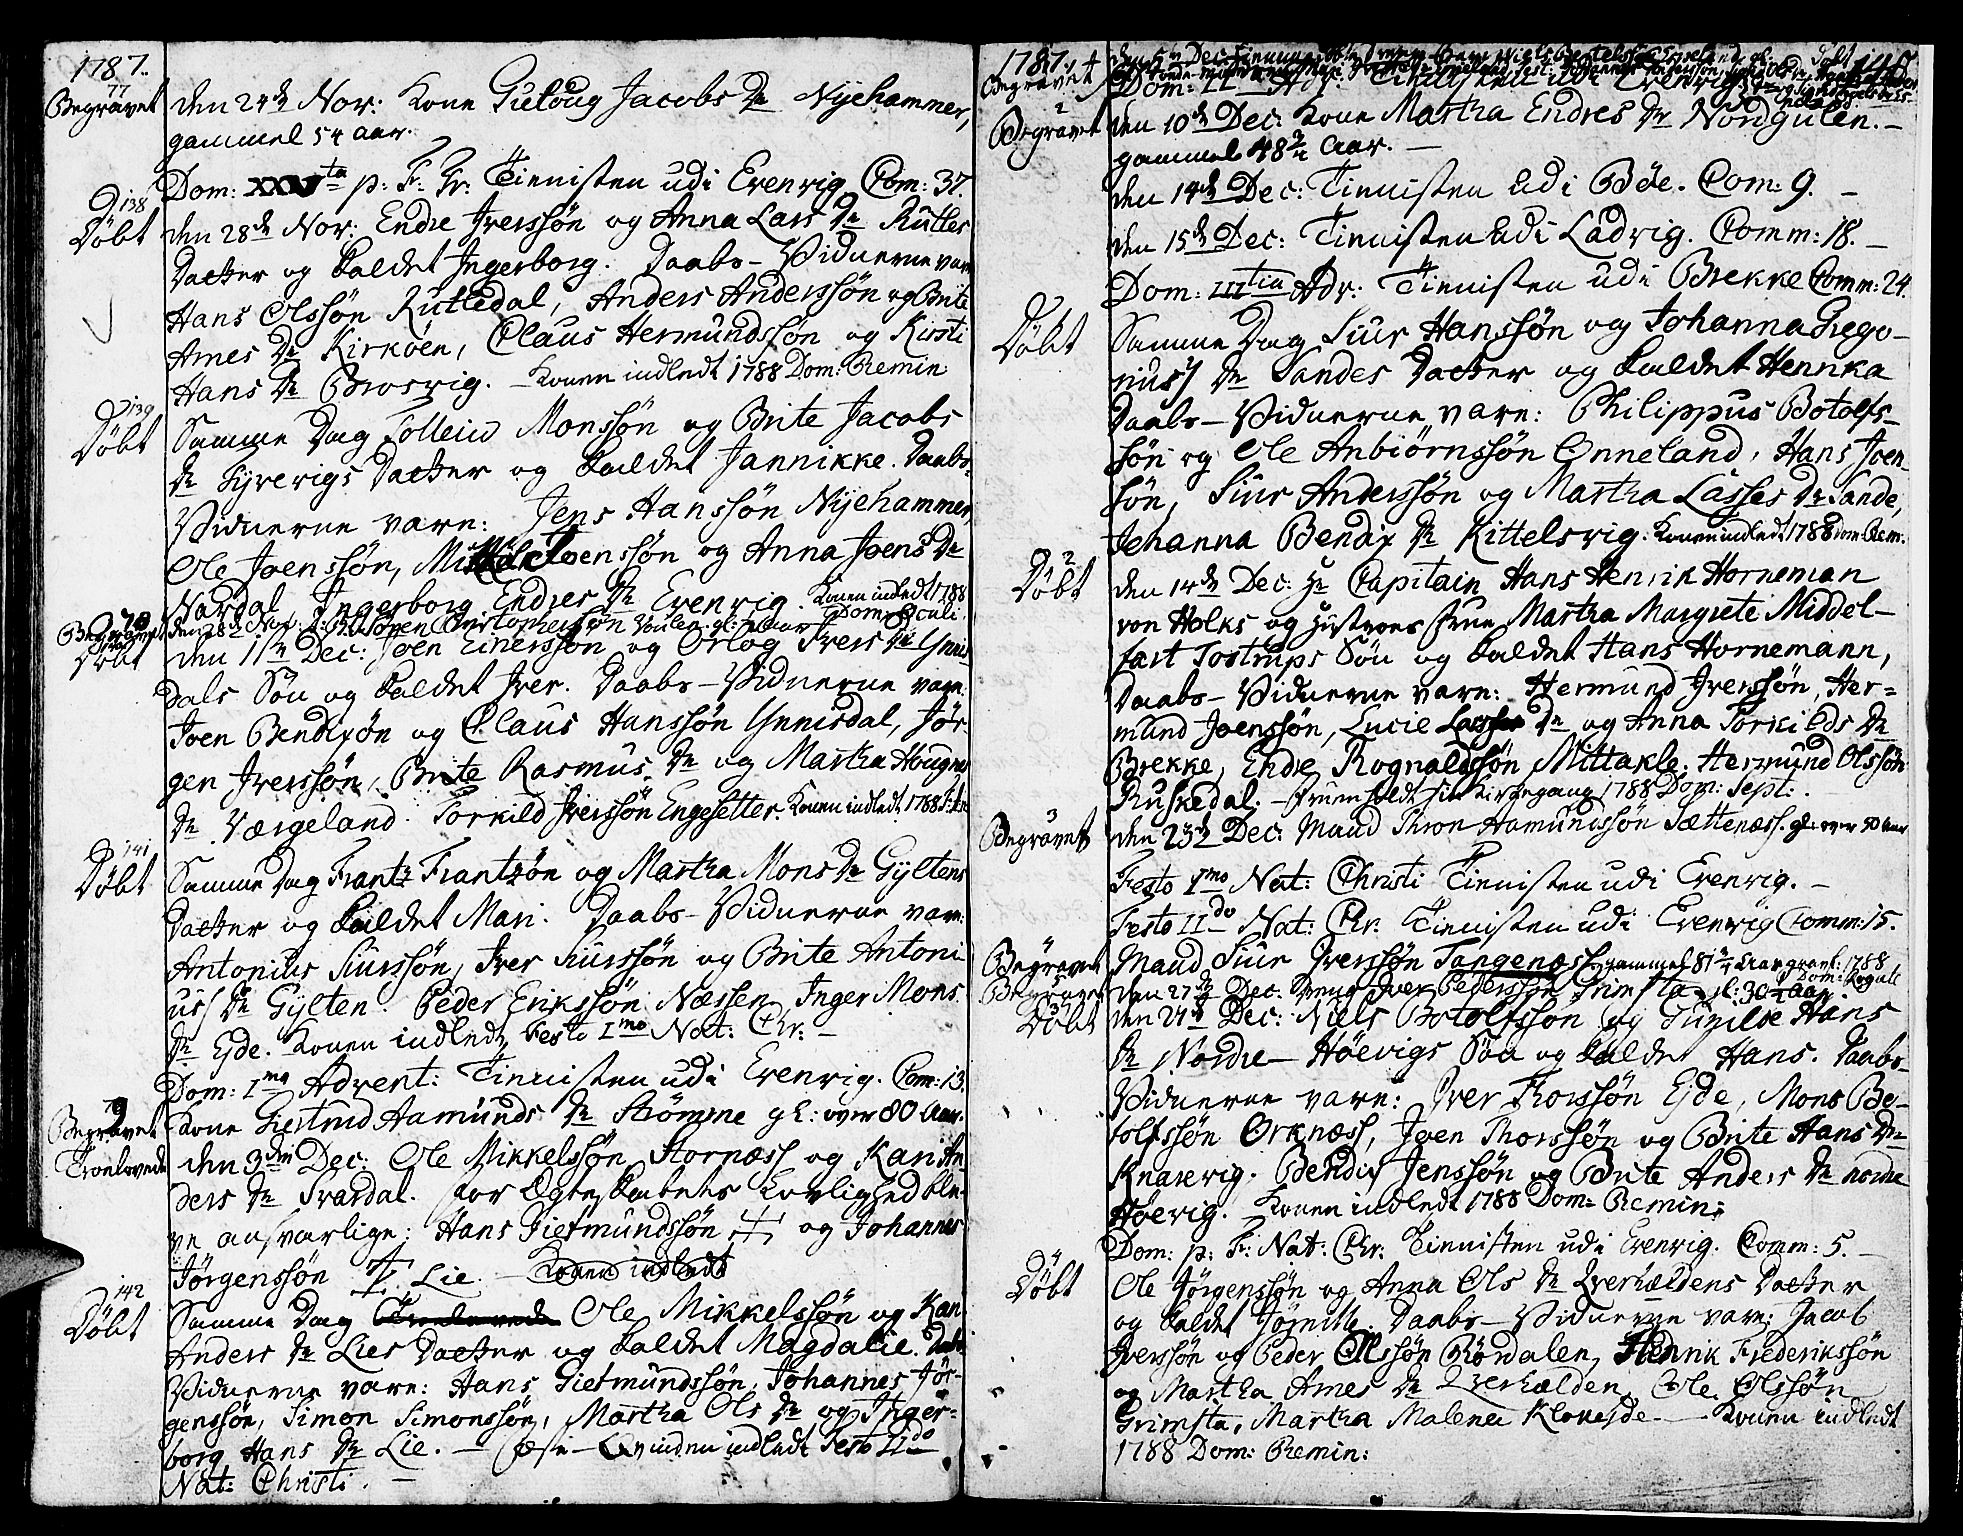 1787.
77
Begravet den 24de Nov: Kone Guloug Jacobs Dr Nyehammer,
gammel 54 aar.
Dom: XXVta p: F: Tr: Tienisten udi Evenvig Com: 37.
138
Døbt den 28de Nov: Endre Iverssøn og Anna Lars Dr Rutles
Datter og kaldet Ingerborg. Daabs-Vidnerne vare
Hans Olssøn Rutledal, Anders Anderssøn og Brite
Arnes Dr Kirkøen, Claus Hermundssøn og Kirsti
Hans Dr Brosvig. - Konen indledt 1788 Dom: Remin
139
Døbt Samme Dag Tollein Monssøn og Brite Jacobs
Dr Syrevigs Datter og kaldet Jannikke. Daabs-
Vidnerne vare: Jens Hanssøn Nyehammer,
Ole Joenssøn, Joenssøn og Anna Joens Dr
Nordal, Ingerborg Endres Dr Evenvig. Konen indledt 1788
Dom: Oculi.
78
Begravet den 28de Nov:
Døbt den 1ste Dec: Joen Einerssøn og Orlog Ivers Dr Ynnis
dals Søn og kaldet Iver. Daabs-Vidnerne vare
Joen Bendixøn og Claus Hanssøn Ynnisdal, Jør-
gen Iverssøn, Brite Rasmus Dr og Martha Hougnes
Dr Værgeland. Torkild Iverssøn Engesetter. Konen indledt 1788
141
Døbt Samme Dag Frantz Frantzøn og Martha Mons Dr Gyltens
Datter og kaldet Mari. Daabs-Vidnerne vare:
Antonius Siurssøn, Iver Siurssøn og Brite Antoni
us Dr Gylten. Peder Erikssøn Næssen, Inger Mons
Dr Ejde. Konen indledt Festo Imo Nat: Chr: -
Dom: Ima Advent: Tienisten udi Evenvig. Com: 13.
79
Begravet Kone Giertrud Aamunds Dr Strømme gl: over 80 Aar.
Troelovede den 3die Dec: Ole Mikkelssøn Stornæss og Kari An
ders Dr Svardal. for Ægteskabets Lovlighed ble-
ve ansvarlige: Hans Gietmundssøn og Johannes
Jørgenssøn Lie. Konen indledt
142
Døbt Samme Dag Troelovede Ole Mikkelssøn og Kari
Anders Dr Lies Datter og kaldet Magdalie. Daabs
Vidnerne vare: Hans Gietmundssøn, Johannes Jør-
genssøn, Simon Simonssøn, Martha Ols Dr og Inger-
borg Hans Dr Lie. - Fæste-Qvinden indledt Festo IIdo
Nat: Christi. -
1787.
Begravet
Dom: II Adv: Tienisten udi Evenvig
2
Begravet den 10de Dec: Kone Martha Endres Dr Nordgulen. -
gammel 48 3/4 Aar. -
den 14de Dec: Tienisten udi Bøe. Com: 9. -
den 15de Dec: Tienisten udi Ladvig. Comm: 18. -
Dom: IIItia Adv: Tienisten udi Brekke Comm: 24.
Døbt Samme Dag Siur Hanssøn og Johanna Grego-
rius Dr Sandes Datter og kaldet Henrika
Daabs-Vidnerne vare: Philippus Botolfs-
søn og Ole Anbiørnssøn Onneland, Hans Joen-
søn, Siur Anderssøn og Martha Lasses Dr Sande,
Johanna Bendix Dr Kittelsvig. Konen indledt 1788 Dom: Rem:
2
Døbt den 14de Dec: Hr Capitain Hans Henrik Horneman
von Holks og Hustroes Frue Martha Margrete Middel-
fart Tostrups Søn og kaldet Hans Hornemann,
Daabs-Vidnerne vare: Hermund Iverssøn, Her-
mund Joenssøn, Lucie Dr og Anna Torkilds Dr
Brekke, Endre Rognaldssøn Mittakle. Hermund Olssøn
Ruskedal. - Fruen holdt sin Kirkegang 1788 Dom: Sept:.
3
Begravet den 23de Dec: Mand Thron Aamundssøn Sættenæss. gl: over 50 Aar
Festo Imo Nat: Christi Tienisten udi Evenvig. -
Festo IIdo Nat: Chr: Tienisten udi Evenvig Comm: 15.
Begravet Mand Siur Iverssøn Tangenæs gammel 81 3/4 Aar 1788
Begravet den 27de Dec: Iver Pederssøn Grimsta gl: 30 Aar.
Døbt den 27de Dec: Niels Botolfssøn og Gunilde Hans
Dr Nordre-Høevigs Søn og kaldet Hans. Daabs-
Vidnerne vare: Iver Thorssøn Ejde, Mons Bo-
tolfssøn Orknæss, Joen Thorssøn og Brite Hans Dr
Knarevig. Bendix Jenssøn og Brite Anders Dr nordre
Høevig. Konen indledt 1788 Dom: Remin:
Dom: p: F: Nat: Chr: Tienisten udi Evenvig. Comm: 5. -
Døbt Ole Jørgenssøn og Anna Ols Dr Qverhældens Datter
og kaldet . Daabs-Vidnerne vare: Jacob
Iverssøn og Peder Olssøn Rørdalen, Henrik Frederikssøn
og Martha Arnes Dr Qverhælden. Ole Olssøn
Grimsta, Martha Malena Klovejde. - Konen indledt
1788 Dom: Remin: